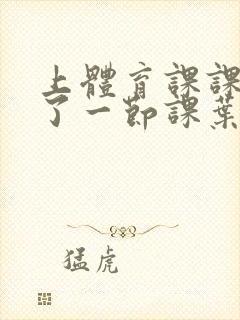 上體育課課
了一節課葉
猛虎